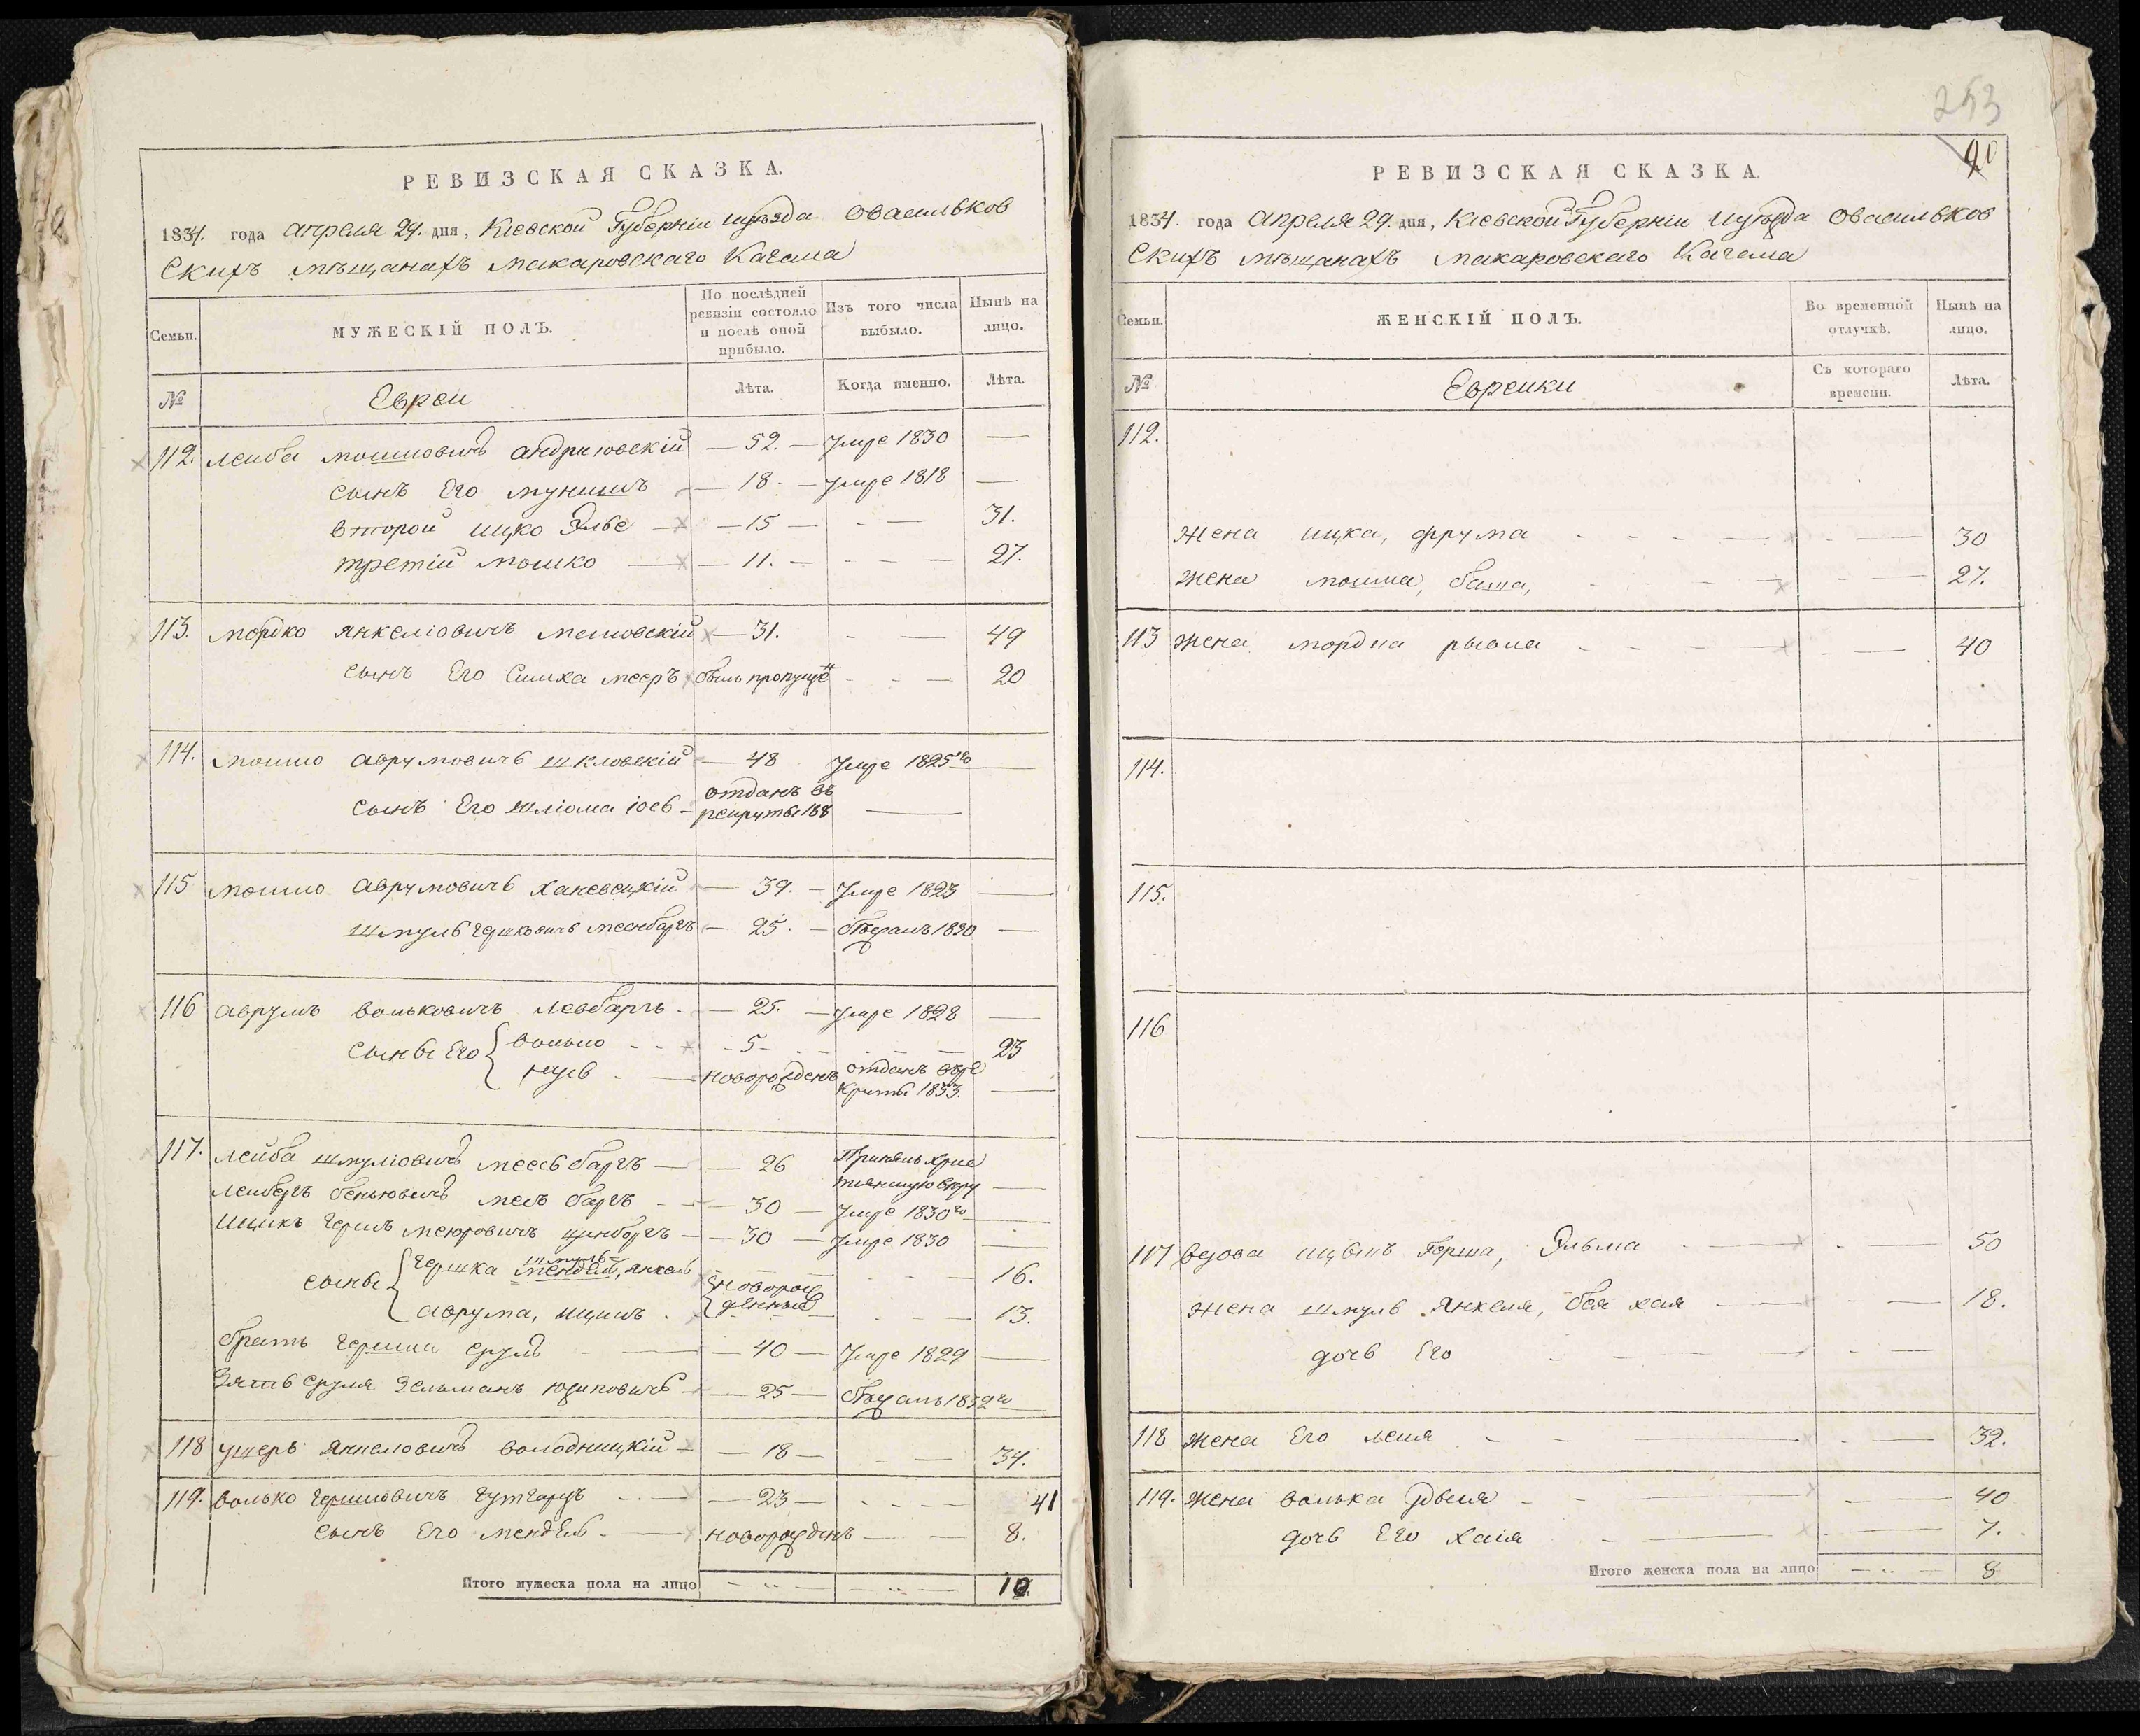 РЕВИЗСКАЯ СКАЗКА.
1834. года апреля 29. дня, Кіевской Губерніи Иуѣзда овасильков
скихъ мѣщанахъ макаровскаго Кагала
Семьи.
МУЖЕСКІЙ ПОЛЪ.
По послѣдней ревизіи состояло и послѣ оной прибыло.
Изъ того числа выбыло.
Нынѣ на лицо.
№
Евреи
Лѣта.
Когда именно.
Лѣта.
112. Лейба мошковичъ андриювскій — 52. — Умре 1830 —
сынъ Его мунишъ — 18. — умре 1818 —
второй ицко Эльве — 15 — - — 31.
третій мошко — 11. — - — 27.
113. мордко янкеліовичъ — 31. - — 49
сынъ Его Симха мееръ былъ пропуще - — 20
114. мошко аврумовичъ шкловскій — 48 Умре 1825го —
сынъ Его шліома іосъ — отданъ въ
рекруты —
115 мошко аврумовичъ ханевецкій — 39. — Умре 1823 —
шмуль гершковичъ — 25. — бѣжалъ 1830 —
116 аврумъ вольковичъ левбаргъ. — 25. — умре 1828 —
сыны Его { волько - - 5 - - — 23
новорожденъ отданъ въ ре
круты 1833. —
117. Лейба шмуліовичъ баргъ — 26 Принялъ хрис
тіянскую вѣру —
баргъ — 30 — Умре 1830го —
Ицикъ — 30 — Умре 1830 —
шмуль
сыны { гершка мендель, янкель { новорож - — 16.
аврума, ицикъ . { денные - — 13.
братъ гершка сруль - — 40 — Умре 1829 —
Зять сруля Зельманъ — 25 — бѣжалъ 1832го
118 ушеръ янкеловичъ володницкій — 18 — - — 34.
119. волько гершковичъ гутгарцъ - — 23 — - - - 41
сынъ Его мендель - — новорожденъ — — 8.
Итого мужеска пола на лицо — - — — - — 10.
253
90
РЕВИЗСКАЯ СКАЗКА.
1834. года апреля 29. дня, Кіевской Губерніи Иуѣзда овасильков
скихъ мѣщанахъ макаровскаго Кагала
Семьи.
ЖЕНСКІЙ ПОЛЪ.
Во временной отлучкѣ.
Нынѣ на лицо.
№
Евреики
Съ котораго времени.
Лѣта.
112.
жена ицка, фрума - - - — - — 30
жена мошка, баша, - - — - — 27.
113 жена мордка рывка - - - — - — 40
114.
115.
116
117 вдова Герша, Эльма - — - — 50
жена шмуль Янкеля, бея хая - — - — 18.
дочь Его - - — - —
118 жена Его лея - - — - — 32.
119. жена волька - - — - — 40
дочь Его хаія - — - — 7.
Итого женска пола на лицо — - — 8